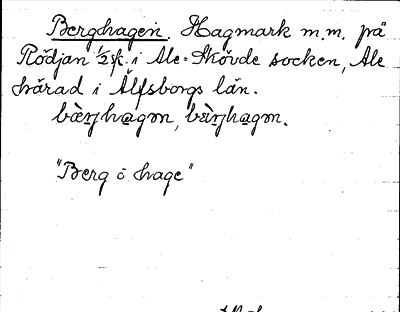 Berghagen. Hagmark m.m. på
Rödjan 1/2 sk. i Ale-Skövde socken, Ale
härad i Älfsborgs län.
"Berg o hage"